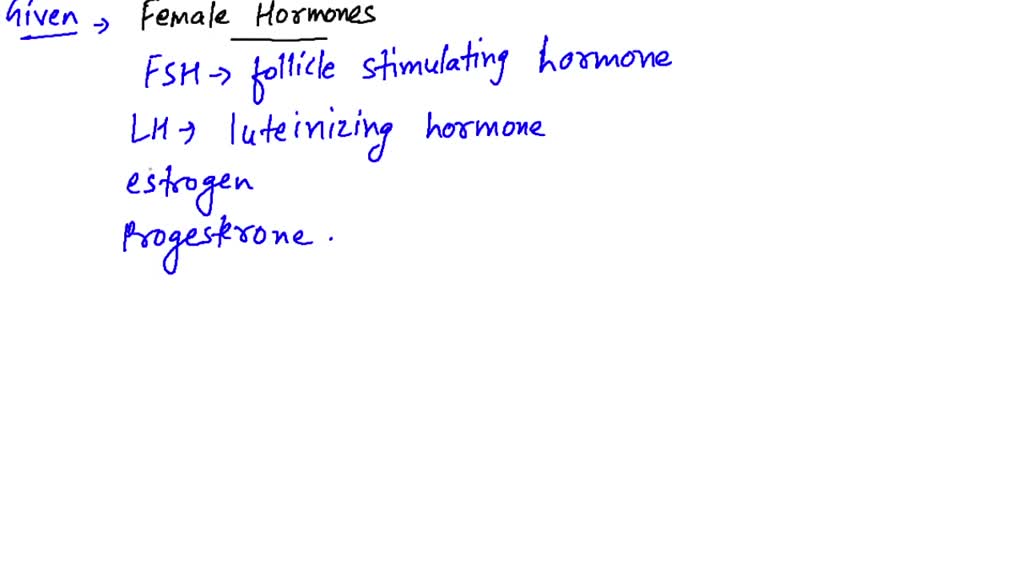 Given → Female Hormones
FSH → follicle stimulating hormone
LH → luteinizing hormone
estrogen
Progesterone .